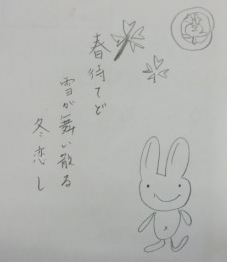 春待てど
雪が舞い散る
冬恋し